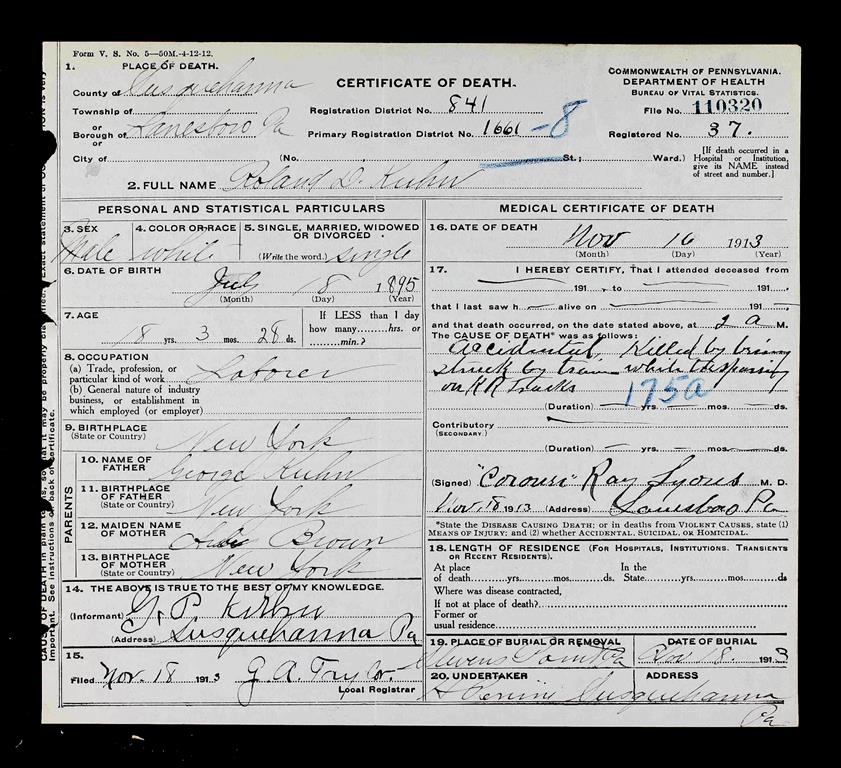 Form V. S. No. 5—50M.-4-12-12.
1. PLACE OF DEATH.
County of Susquehanna
Township of
or
Borough of Lanesboro Pa
or
City of (No. St.; Ward.)
CERTIFICATE OF DEATH.
Registration District No. 841
Primary Registration District No. 1661-8
COMMONWEALTH OF PENNSYLVANIA.
DEPARTMENT OF HEALTH
BUREAU OF VITAL STATISTICS.
File No. 110320
Registered No. 37.
[If death occurred in a Hospital or Institution, give its NAME instead of street and number.]
2. FULL NAME Roland D. Kuhn
PERSONAL AND STATISTICAL PARTICULARS
3. SEX Male
4. COLOR OR RACE white
5. SINGLE, MARRIED, WIDOWED OR DIVORCED
(Write the word.) single
6. DATE OF BIRTH
July 8 1895
(Month) (Day) (Year)
7. AGE
18 yrs. 3 mos. 28 ds.
If LESS than 1 day
how many hrs. or
min.?
8. OCCUPATION
(a) Trade, profession, or
particular kind of work Laborer
(b) General nature of industry
business, or establishment in
which employed (or employer)
9. BIRTHPLACE
(State or Country) New York
PARENTS
10. NAME OF
FATHER George Kuhn
11. BIRTHPLACE
OF FATHER
(State or Country) New York
12. MAIDEN NAME
OF MOTHER Brown
13. BIRTHPLACE
OF MOTHER
(State or Country) New York
14. THE ABOVE IS TRUE TO THE BEST OF MY KNOWLEDGE.
(Informant) G. P. Kuhn
(Address) Susquehanna Pa
15.
Filed Nov. 18 1913 G. A. Taylor
Local Registrar
MEDICAL CERTIFICATE OF DEATH
16. DATE OF DEATH
Nov 16 1913
(Month) (Day) (Year)
17. I HEREBY CERTIFY, That I attended deceased from
191 , to 191 ,
that I last saw h — alive on 191 ,
and that death occurred, on the date stated above, at 2 a M.
The CAUSE OF DEATH* was as follows:
Accidental, Killed by being
struck by train while trespassing
on RR Tracks
175a
(Duration) yrs. mos. ds.
Contributory
(SECONDARY.)
(Duration) yrs. mos. ds.
(Signed) "Coroner" Ray Lyons M. D.
Nov. 18 1913 (Address) Lanesboro Pa
*State the DISEASE CAUSING DEATH; or in deaths from VIOLENT CAUSES, state (1)
MEANS OF INJURY; and (2) whether ACCIDENTAL, SUICIDAL, OR HOMICIDAL.
18. LENGTH OF RESIDENCE (FOR HOSPITALS, INSTITUTIONS, TRANSIENTS
OR RECENT RESIDENTS).
At place In the
of death yrs. mos. ds. State yrs. mos. ds
Where was disease contracted,
If not at place of death?
Former or
usual residence
19. PLACE OF BURIAL OR REMOVAL
Stevens Point Pa
DATE OF BURIAL
Nov 18. 1913
20. UNDERTAKER ADDRESS
Susquehanna
Pa